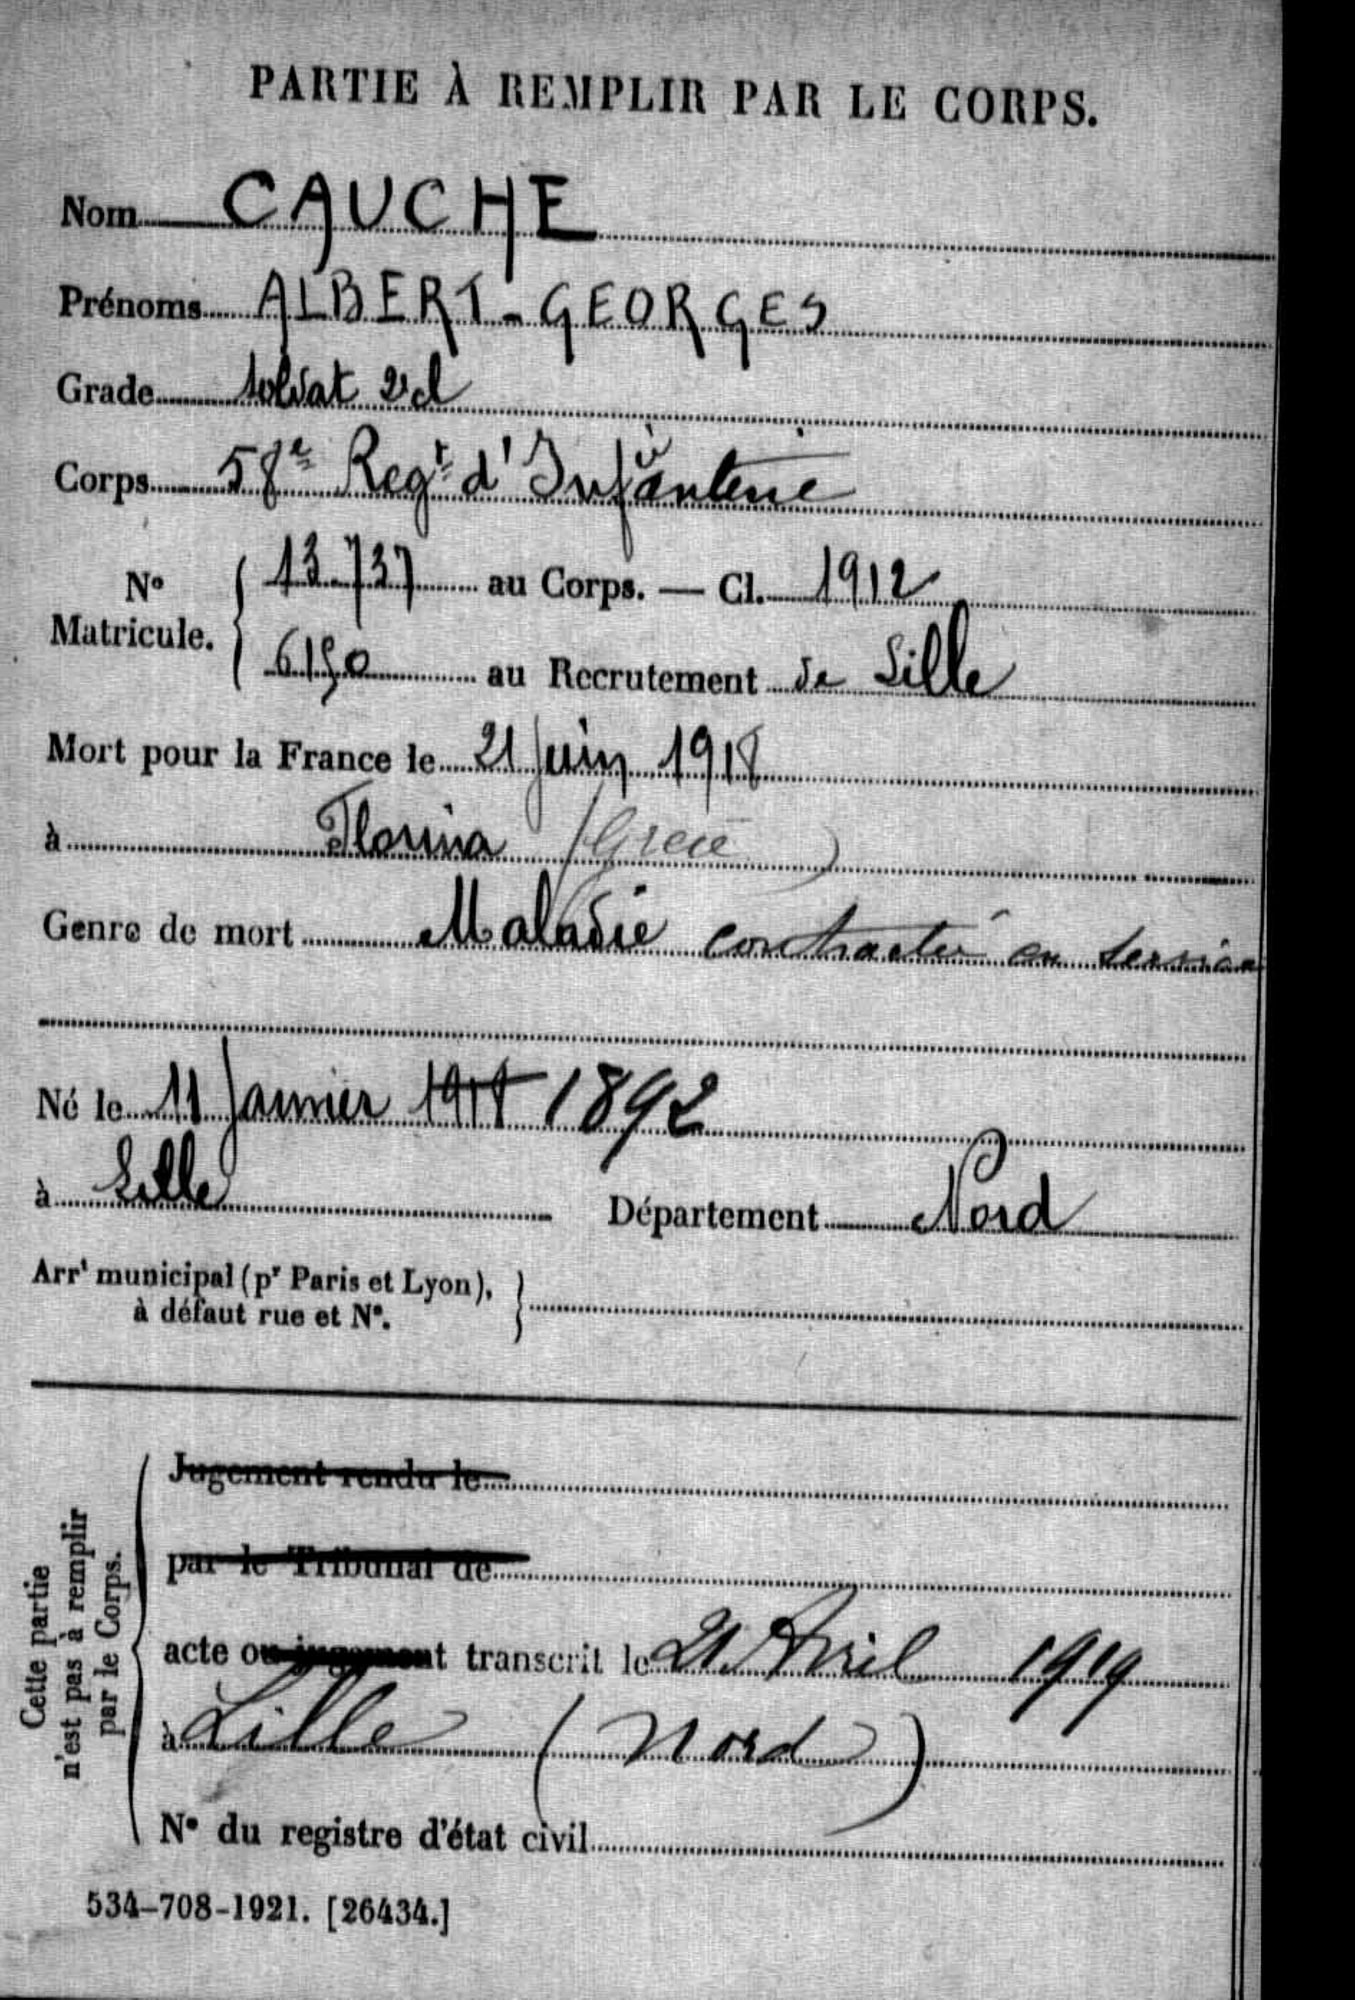 PARTIE À REMPLIR PAR LE CORPS.
Nom CAUCHE
Prénoms ALBERT-GEORGES
Grade soldat 2e cl
Corps 58e Regt d'Infanterie
No Matricule. 13.737 au Corps. — Cl. 1912
6150 au Recrutement de Lille
Mort pour la France le 21 Juin 1918
à Florina (Grèce)
Genre de mort Maladie contractée en service
Né le 11 Janvier 1918 1892
à Lille Département Nord
Arrt municipal (pr Paris et Lyon),
à défaut rue et No.
Cette partie
n'est pas à remplir
par le Corps.
Jugement rendu le
par le Tribunal de
acte ou jugement transcrit le 21 Avril 1919
à Lille (Nord)
No du registre d'état civil
534-708-1921. [26434.]